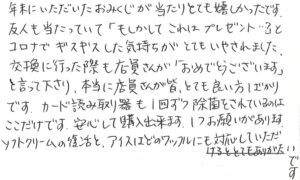 年末にいただいたおみくじが当たりとても嬉しかったです。
友人も当たっていて「もしかしてこれはプレゼント…?と
コロナでギスギスした気持ちがとてもいやされました。
交換に行った際も店員さんが「おめでとうございます」
と言って下さり、本当に店員さんが皆、とても良い方ばかり
です。カード読み取り器も1回ずつ除菌をされているのは
ここだけです。安心して購入出来ます。1つお願いがあります。
ソフトクリームの復活と、アイスはどのワッフルにも対応していただ
けるととてもありがたいです